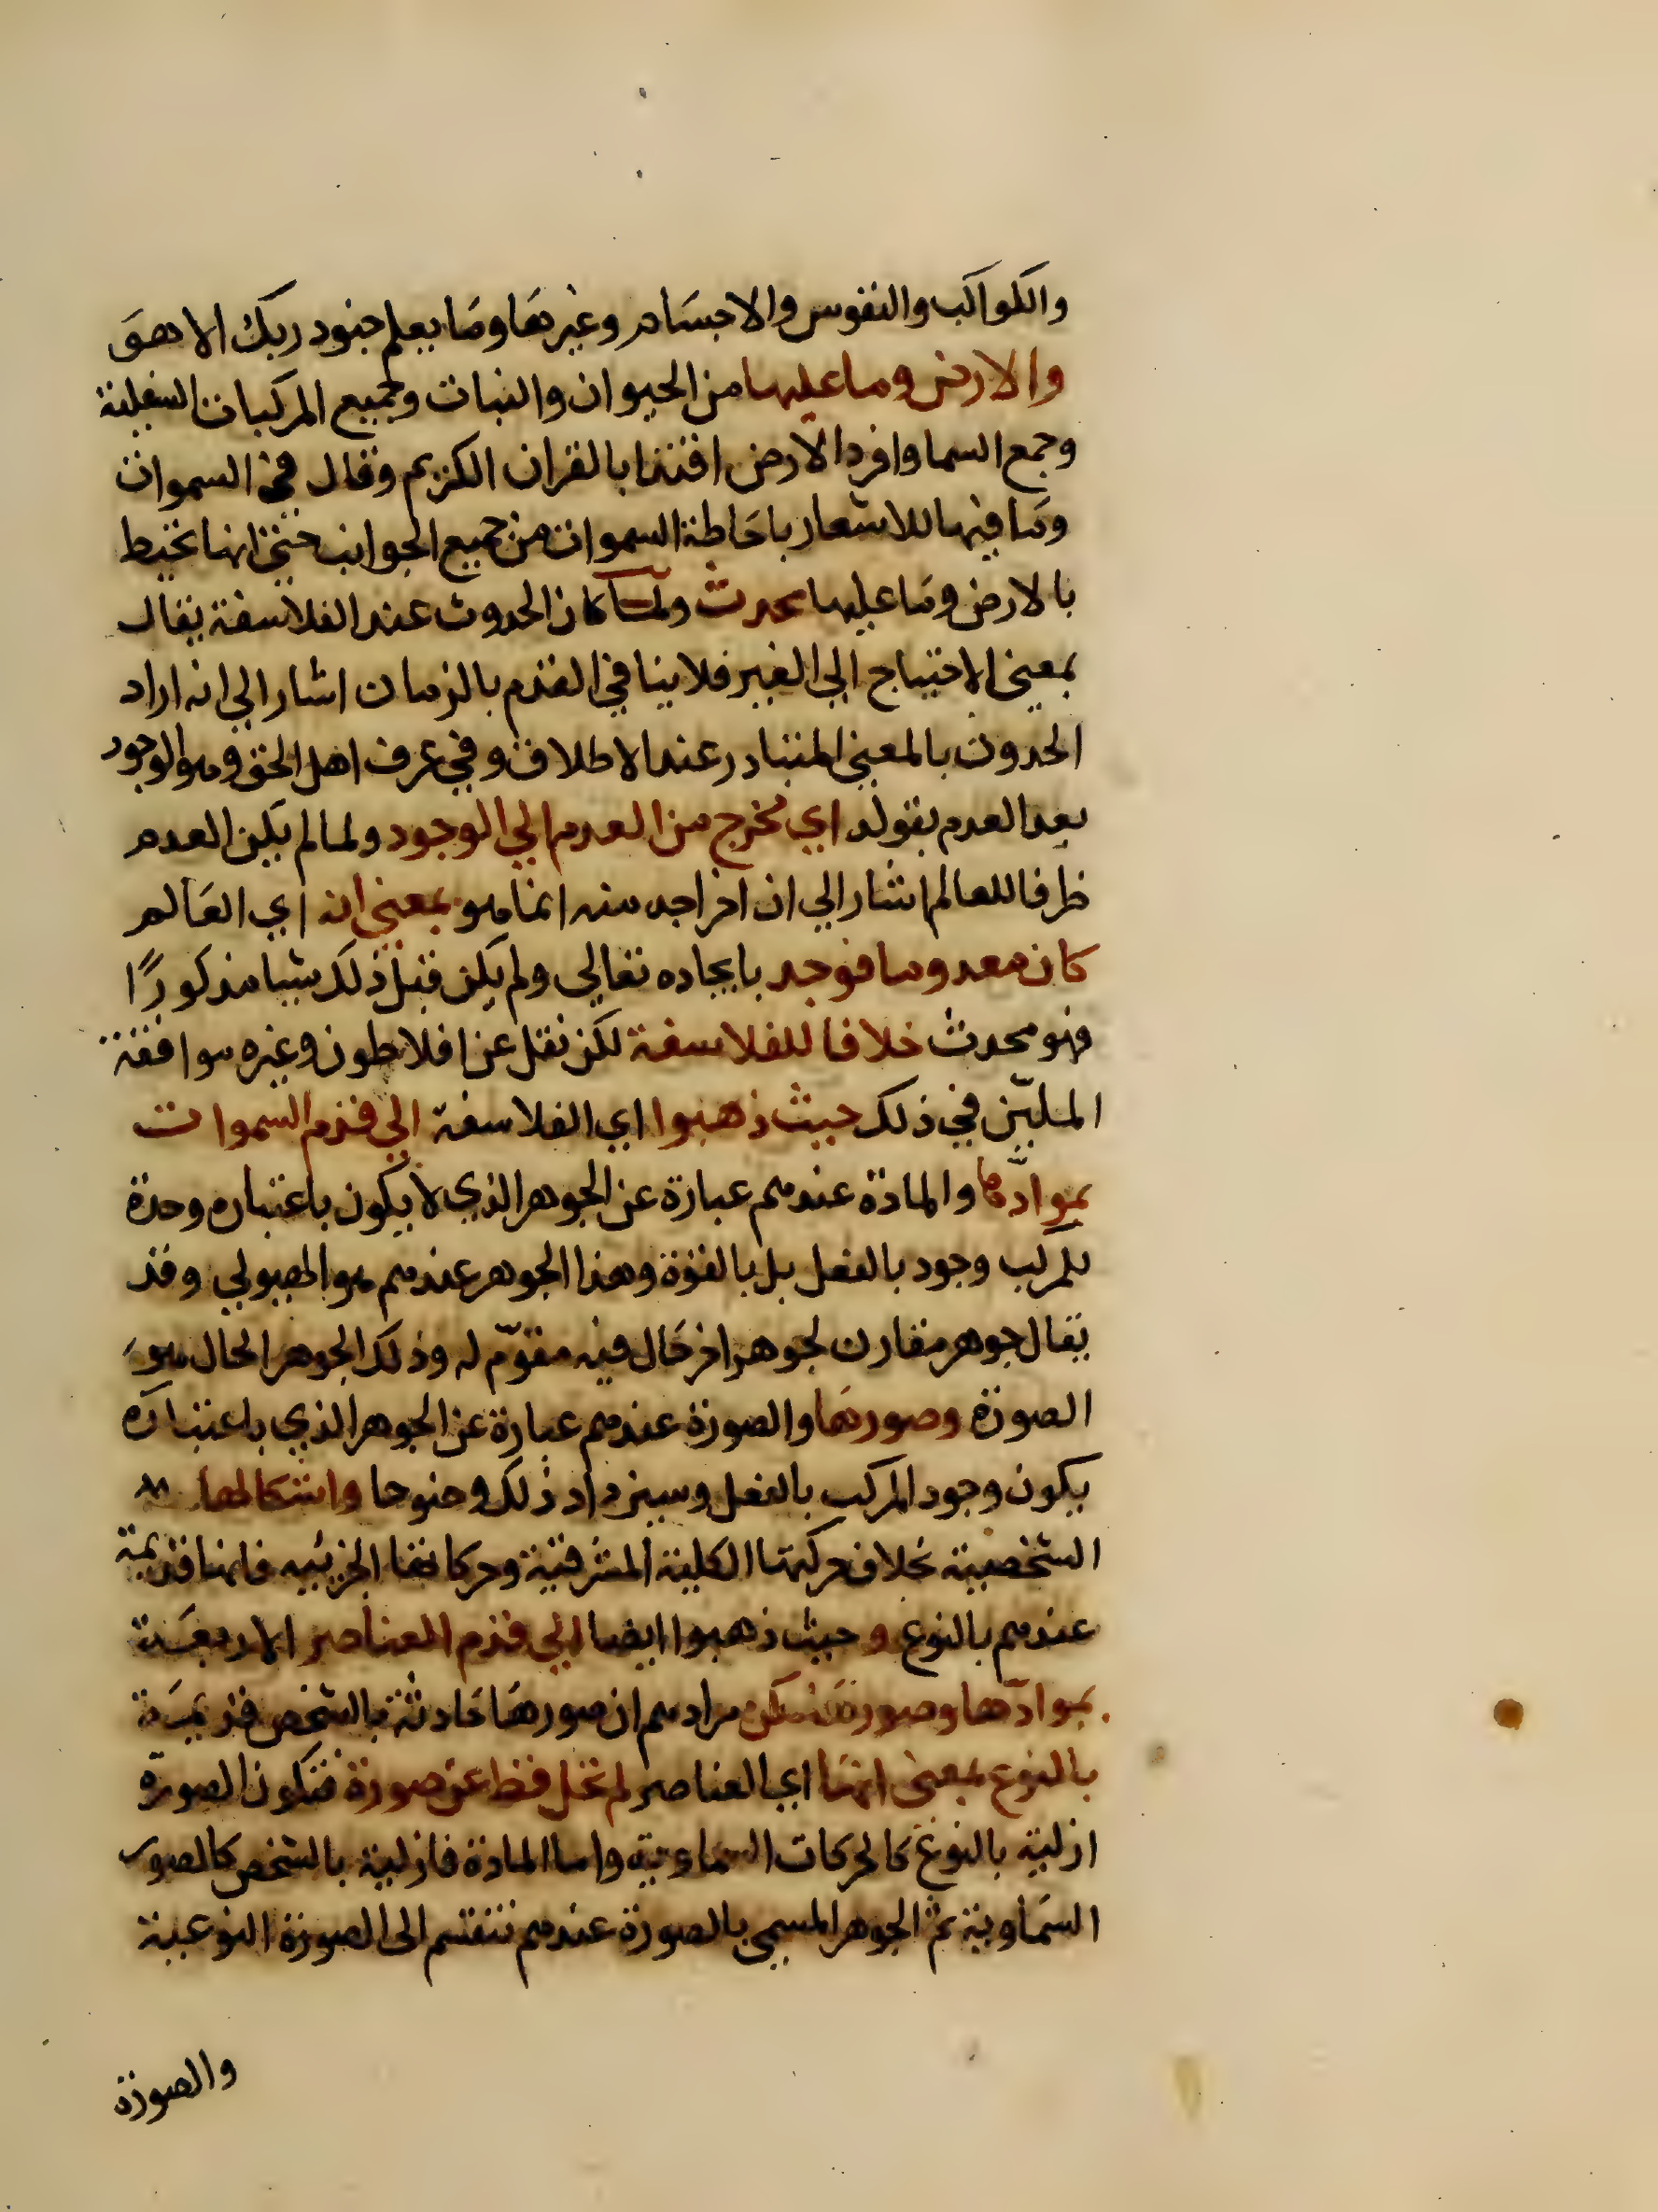 والكواكب والنفوس والاجسام وغيرها وما يعلم جنود ربك الا هو
والارض وما عليها من الحيوان والنبات وجميع المركبات السفلية
وجمع السما وافرد الارض اقتدا بالقران الكريم وقال في السموات
وما فيها للاشعار باحاطة السموات من جميع الجوانب حتى انها تحيط
بالارض وما عليها محدث ولما كان الحدوث عند الفلاسفة يقال
بمعنى الاحتياج الي الغير فلا ينافي القدم بالزمان اشار الي انه اراد
الحدوث بالمعني المتبادر عند الاطلاق وفي عرف اهل الحق وهو الوجود
بعد العدم بقوله اي مخرج من العدم الي الوجود ولما لم يكن العدم
ظرفا للعالم اشار الي ان اخراجه منه انما هو بمعني انه اي العالم
كان معدوما فوجد بايجاده تعالي ولم يكن قبل ذلك شيا مذكورًا
فهو محدث خلافا للفلاسفة لكن نقل عن افلاطون وغيره موافقة
المليّين في ذلك حيث ذهبوا اي الفلاسفة الي قدم السموات
بموادّها والمادة عندهم عبارة عن الجوهر الذي لا يكون باعتباره وحده
للمركب وجود بالفعل بل بالقوة وهذا الجوهر عندهم هو الهيولي وقد
يقال جوهر مقارن لجوهر اخر حال فيه مقوّم له وذلك الجوهر الحال هو
الصورة وصورها والصورة عندهم عبارة عن الجوهر الذي باعتباره
يكون وجود المركب بالفعل وسيزداد ذلك وضوحا واشكالها
الشخصية بخلاف حركتها الكلية المشرقية وحركاتها الجزئيه فانها قديمة
عندهم بالنوع و حيث ذهبوا ايضا الي قدم العناصر الاربعة
بموادّها وصورها لكن مرادهم ان صورها حادثة بالشخص قديمة
بالنوع بمعنى انها اي العناصر لم تخل قط عن صورة فتكون الصورة
ازلية بالنوع كالحركات السماوية واما المادة فازلية بالشخص كالصور
السماوية ثم الجوهر المسمى بالصورة عندهم تنقسم الى الصورة النوعية
والصورة